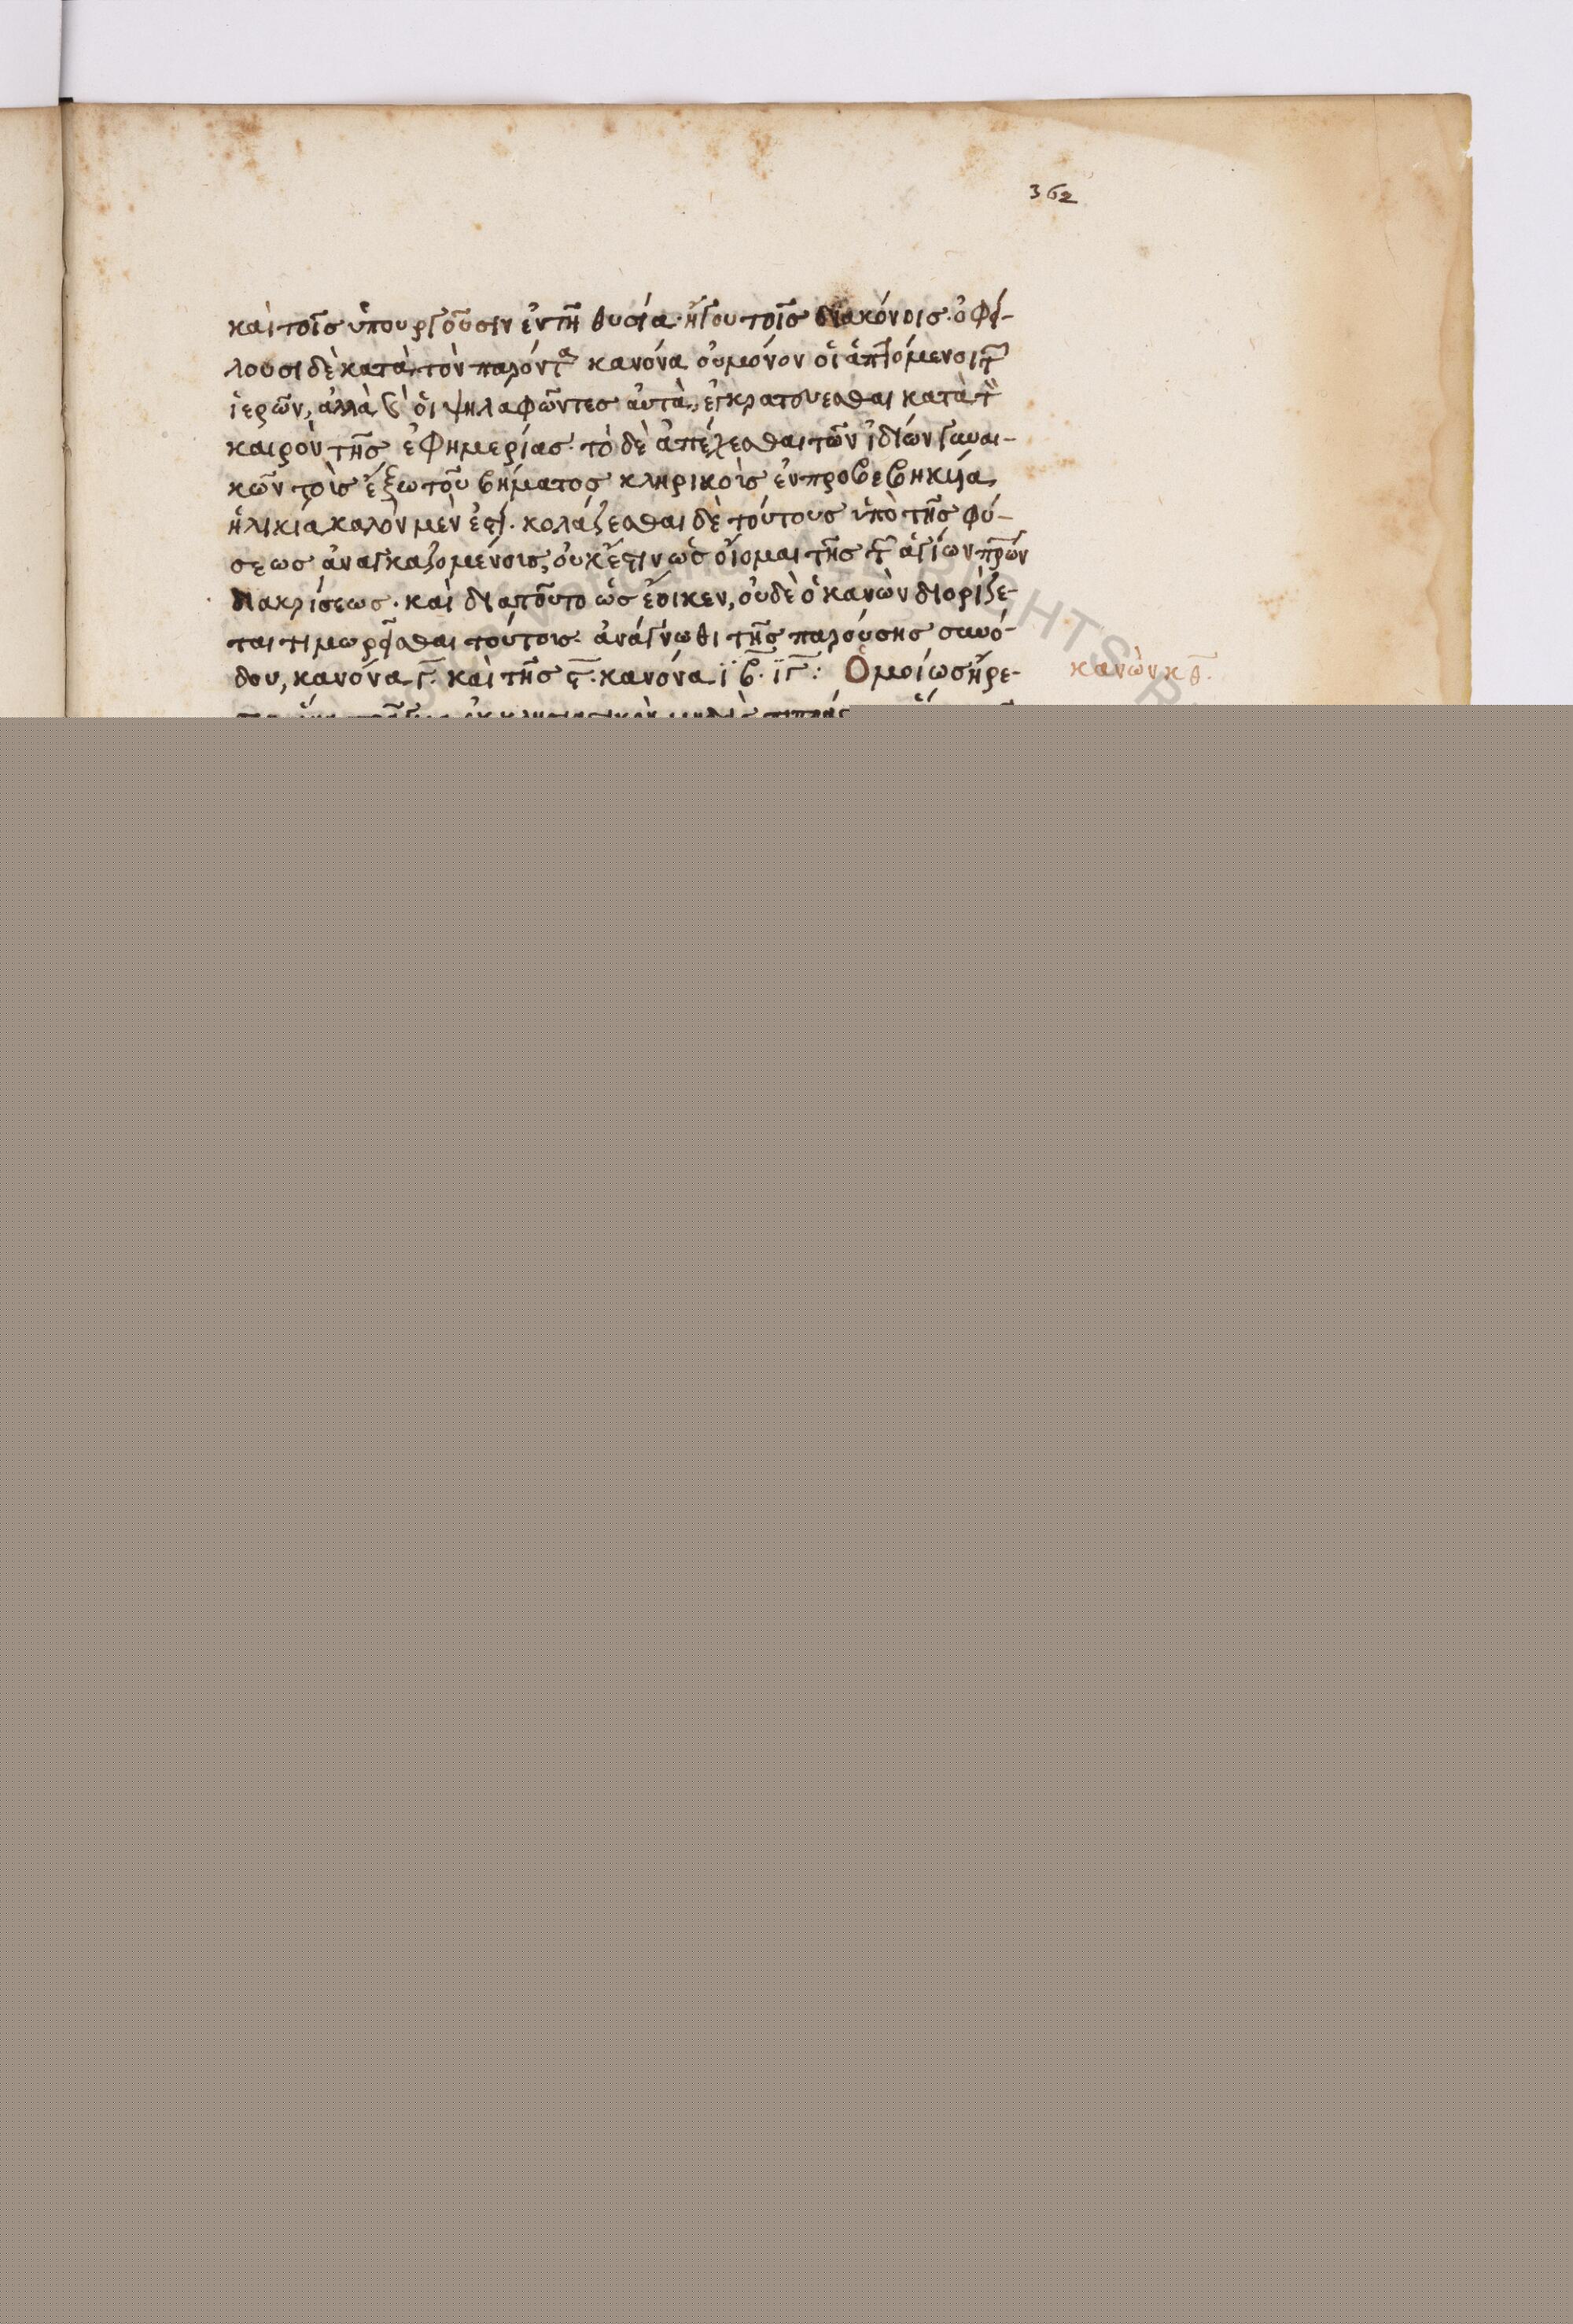 362
καὶ τοῖς ὑπουργοῦσιν ἐν τῆ θυσία· ἤγου τοῖς διακόνοις· ὀφεί-
λουσι δὲ κατὰ τὸν παρόντα κανόνα οὐ μόνον οἱ ἁπτόμενοι τῶν
ἱερῶν, ἀλλὰ καὶ οἱ ψηλαφῶντες αὐτὰ, ἐγκρατεύεσθαι κατὰ τὸν
καιρὸν τῆς ἐφημερίας· τὸ δὲ ἀπέχεσθαι τῶν ἰδίων γυναι-
κῶν τοῖς ἔξω τοῦ βήματος κληρικοῖς ἐν προβεβηκυία
ἡλικία καλὸν μὲν ἐστί· κολάζεσθαι δὲ τούτους ὑπὸ τῆς φύ-
σεως ἀναγκαζομένοις, οὐκ ἔστιν ὡς οἶομαι τῆς τῶν ἁγίων πρῶν
διακρίσεως· καὶ διατοῦτο ὡς ἔοικεν, οὐδὲ ὁ κανὼν διορίζε-
ται τιμωρεῖσθαι τούτοις· ἀνάγνωθι τῆς παρούσης συνό-
δου, κανόνα γ̅· καὶ τῆς ϛ̅· κανόνα ϊβ̅· ϊγ̅: Ὁμοίως ἤρε-
κανὼν κθ̅·